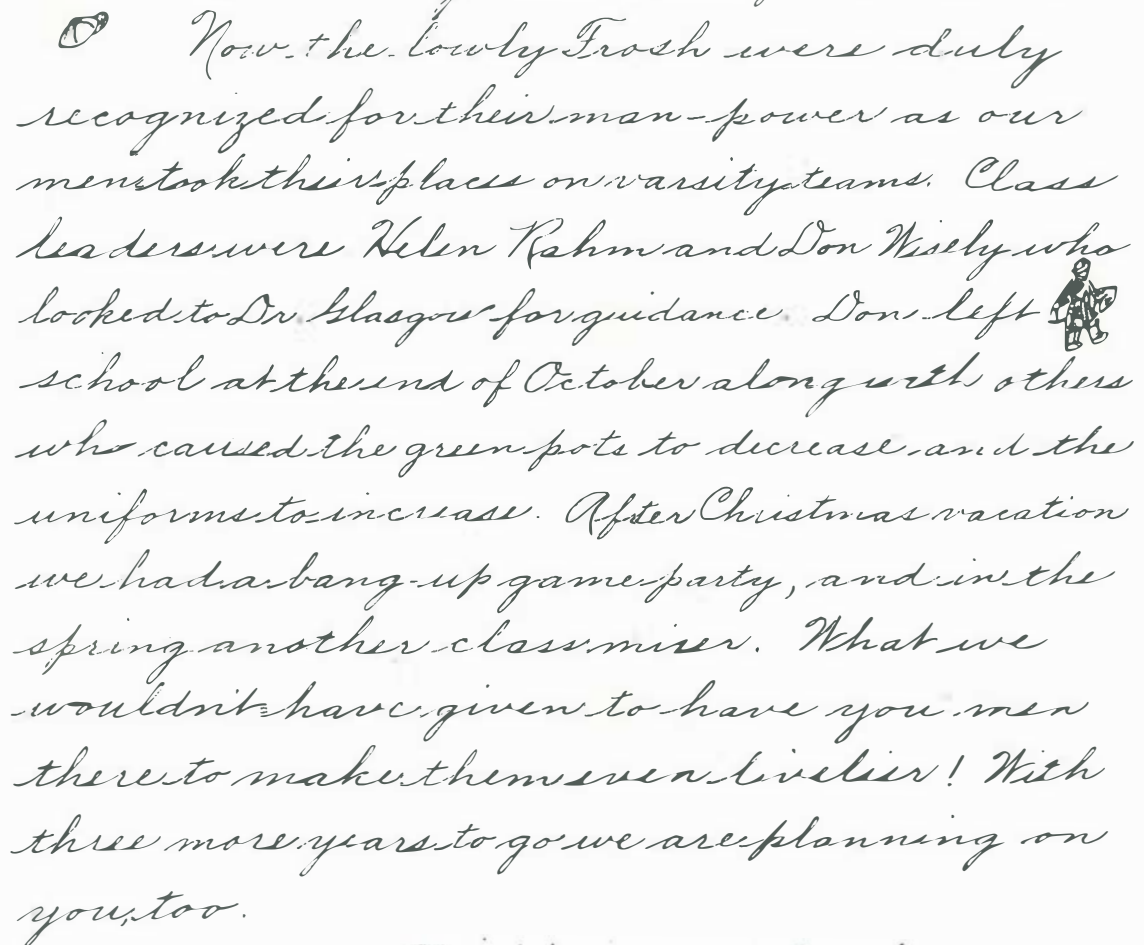 Now the lowly Frosh were duly
recognized for their man-power as our
men took their places on varsity teams. Class
leaders were Helen Rahm and Don Wisely who
looked to Dr Glasgow for guidance. Don left
school at the end of October along with others
who caused the green pots to decrease and the
uniforms to increase. After Christmas vacation
we had a bang-up game party, and in the
spring another class mixer. What we
wouldn't have given to have you men
there to make them even livelier! With
three more years to go we are planning on
you, too.